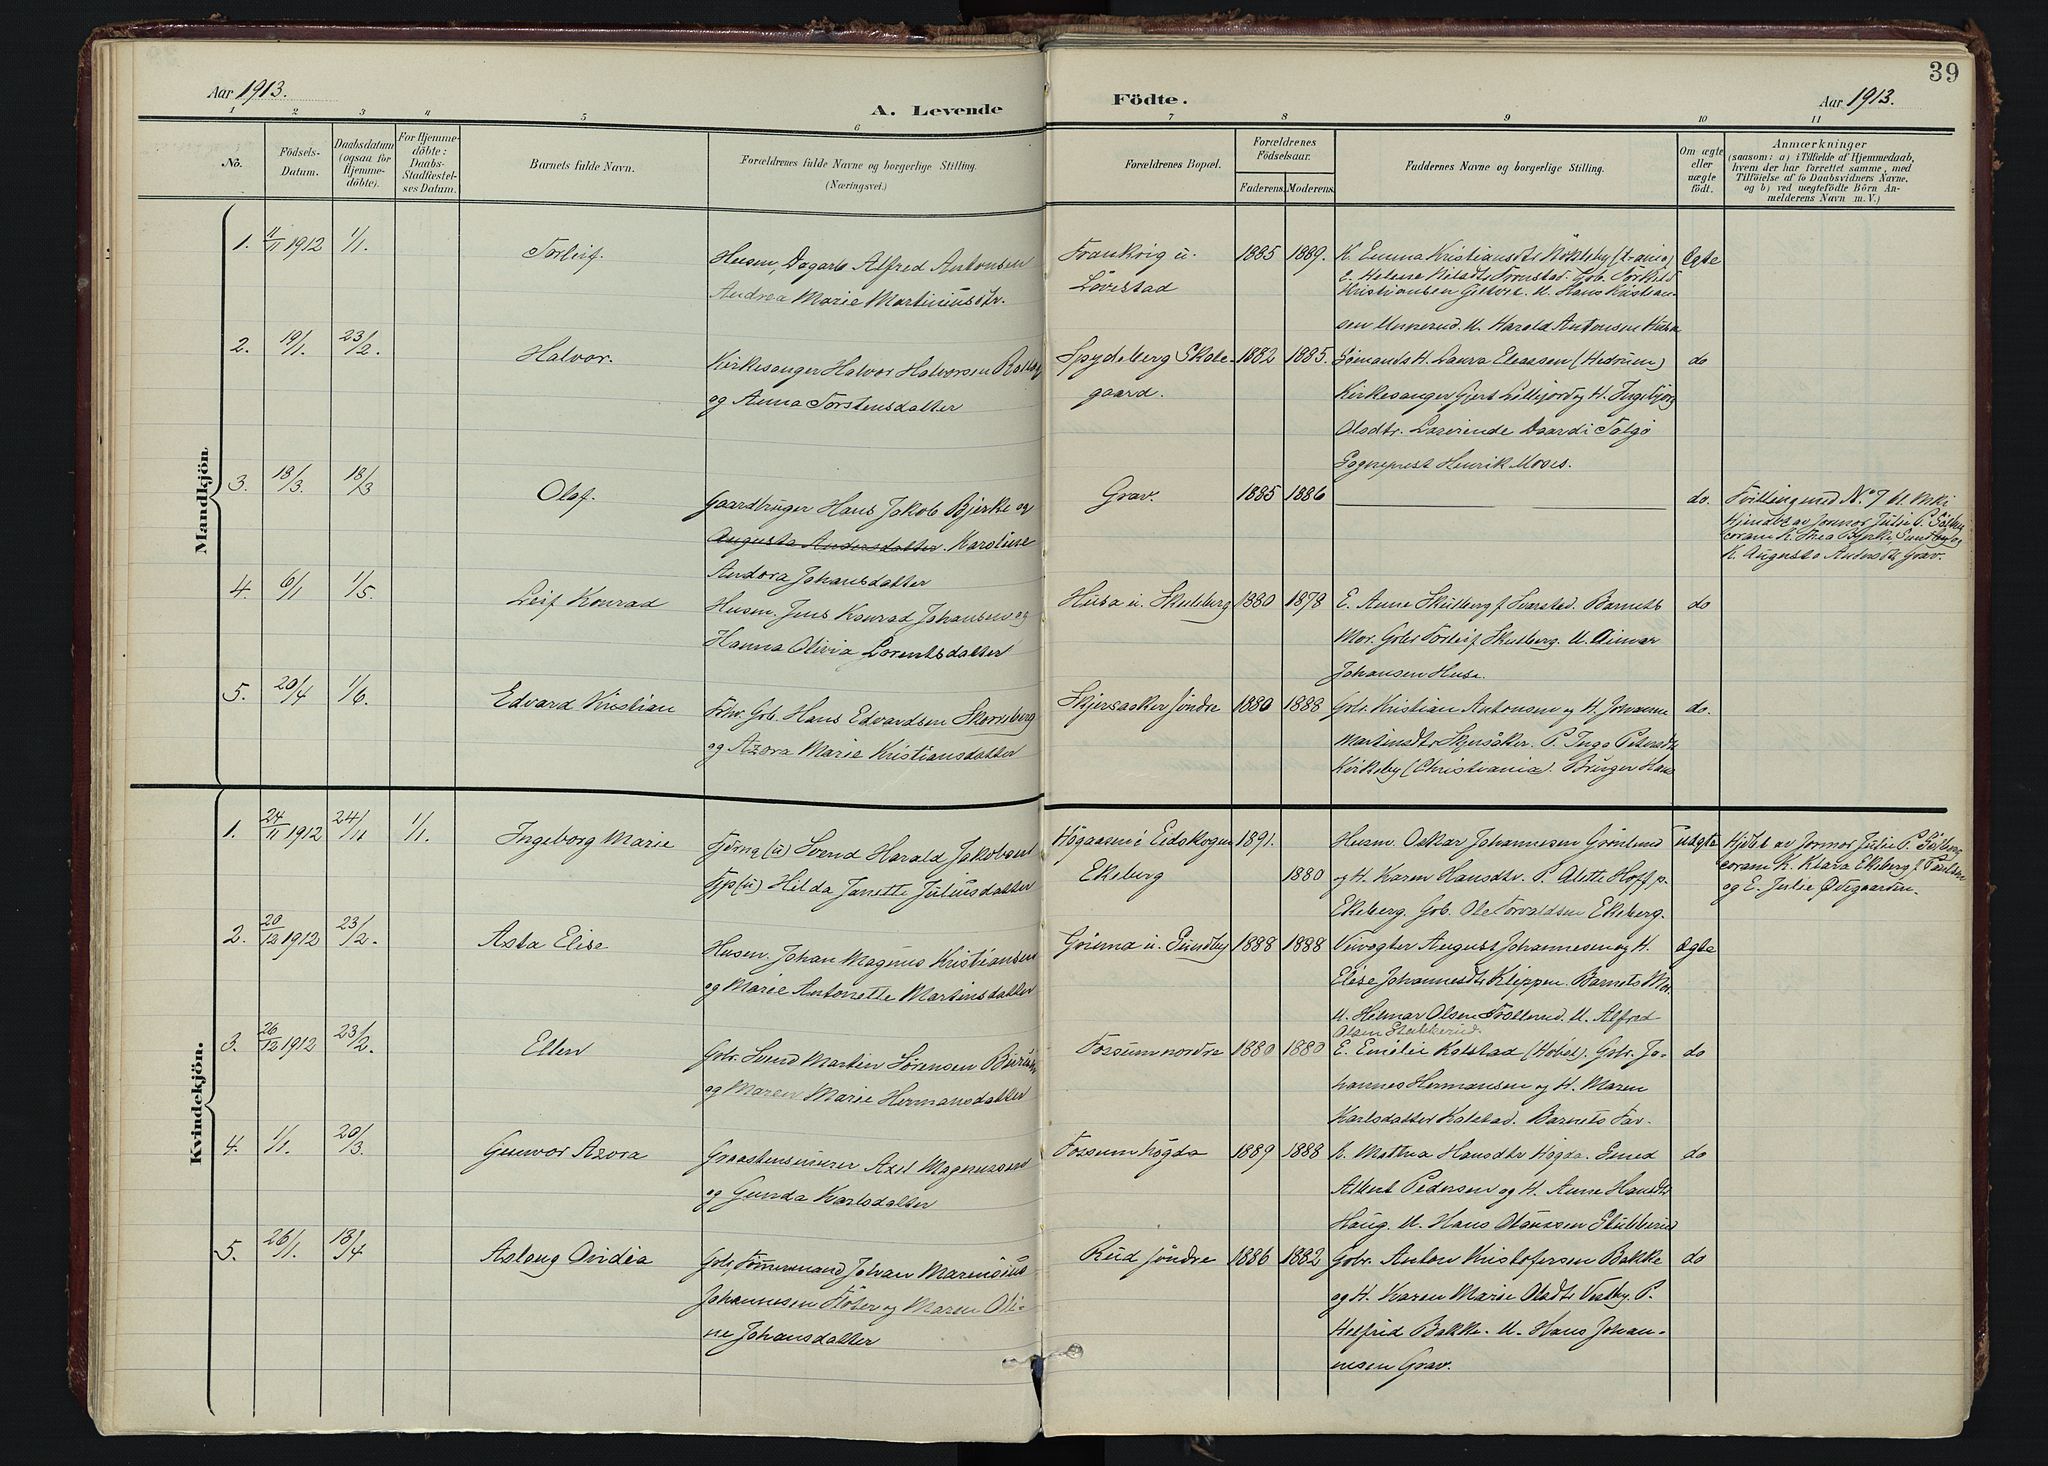 39
Aar 1913.
A. Levende
Födte.
Aar 1913.
1 2 3 4 5 6 7 8 9 10 11
No.
Födsels-
Datum.
Daabsdatum
(ogsaa for
Hjemme-
döbte).
For Hjemme-
döbte:
Daabs-
Stadfæstel-
ses Datum.
Barnets fulde Navn.
Forældrenes fulde Navne og borgerlige Stilling.
(Næringsvei.)
Forældrenes Bopæl.
Forældrenes
Födselsaar.
Faderens. Moderens.
Faddernes Navne og borgerlige Stilling.
Om ægte
eller
uægte
födt.
Anmærkninger
(saasom: a) i Tilfælde af Hjemmedaab,
hvem der har forrettet samme, med
Tilföielse af to Daabsvidners Navne,
og b) ved uægtefödte Börn An-
melderens Navn m. V.)
Mandkjön.
1. 11/11 1912 1/1. Torleif.
Husm, Dagarb Alfred Antonsen
Andrea Marie Martiniusdtr.
Frankrig u.
Løvestad
1885 1889.
K. Emma Kristiansdtr
Kristiansen
M. Hans Kristian-
sen M. Harald Antonsen Husa
Ægte
2. 19/1. 23/2. Halvor.
Kirkesanger Halvor Halvorsen
og Anna Torstensdatter
Spydeberg Skole
gaard.
1882 1885.
Sømands H. Laura Eleassen (Hedrum)
Kirkesanger Gjert og H. Ingebjørg
Olsdtr.
Sogneprest Henrik Moses.
do
3. 18/3. 18/3 Olaf.
Gaardbruger Hans Jakob Bjerke og
Augusta Andersdatter. Karoline
Andora Johansdatter
Grav.
1885 1886
do.
Tvilling med No 7 bl.
Hjemdbt av Jormor Julie P.
coram K. Thea Bjerke, Sundby og
K. Augusta Andersdtr Grav.
4. 6/1 1/5. Leif Konrad
Husm. Jens Konrad Johansen og
Hanna Olivia Lorentsdatter
Husa u. Skulberg
1880 1878
E. Anne Skulberg f. Svarstad. Barnets
Mor. Gbr Torleif Skulberg. U.
Johansen Husa.
do
5. 20/4 1/6. Edvard Kristian
Fhv. Gb. Hans Edvardsen
og Azora Marie Kristiansdatter
Skjersaker søndre
1880 1888
Gbr. Kristian Antonsen og H. Johanne
Martinsdtr Skjersaker. P. Inga Petersdtr
Kirkeby (Christiania). Bruger Hans
do.
Kvindekjön.
1. 24/11 1912 24/11 1/1. Ingeborg Marie
(u) Svend Harald Jakobsen
Tjp (u) Hilda Janette Juliusdatter
Høgaasen i Eidskogen
Ekeberg
1891.
1880
Husm. Oskar Johannesen Grønlund
og H. Karen Hansdtr. P. Alette Hoff p.
Ekeberg. Gb. Ole Torvaldsen Ekeberg.
uægte
Hjdbt av Jormor Julie P.
coram K. Klara Ekeberg f. Paulsen
og E. Julie Ødegaarden.
2. 20/12 1912 23/2. Asta Elise
Husm. Johan Magnus Kristiansen
og Marie Antonette Martinsdatter
u. Sundby
1888 1888
August Johannesen og H.
Elise Johannesdtr Klippen. Barnets Mor.
U. Helmar Olsen Trollerud. U. Alfred
Olsen Stubberud.
Ægte
3. 26/12 1912 23/2. Ellen
Gbr. Svend Martin Sørensen
og Maren Marie Hermansdatter
Fossum nordre
1880 1880
E. Emelie Kolstad (Hobøl). Gbr. Jo-
hannes Hermansen og H. Maren
Karlsdatter Kolstad. Barnets Far.
do
4. 1/1. 20/3. Gunvor Azora
Graastensmurer Axel Magnussen
og Gunda Karlsdatter
Fossum høgda
1889 1888
K. Mathea Hansdtr Høgda. Smed
Albert Pedersen og H. Anne Hansdtr
Haug. U. Hans Olaussen Stubberud
do
5. 26/1. 13/4 Aslaug Ovidia
Gbr, Tømmermand Johan Marensius
Johannesen og Maren Oli-
ne Johansdatter
Rud søndre
1886 1882
Gbr. Anton Kristofersen Bakke
og H. Karen Marie Olsdtr Vestby. P.
Helfrid Bakke. U. Hans Johan-
nesen Grav.
do